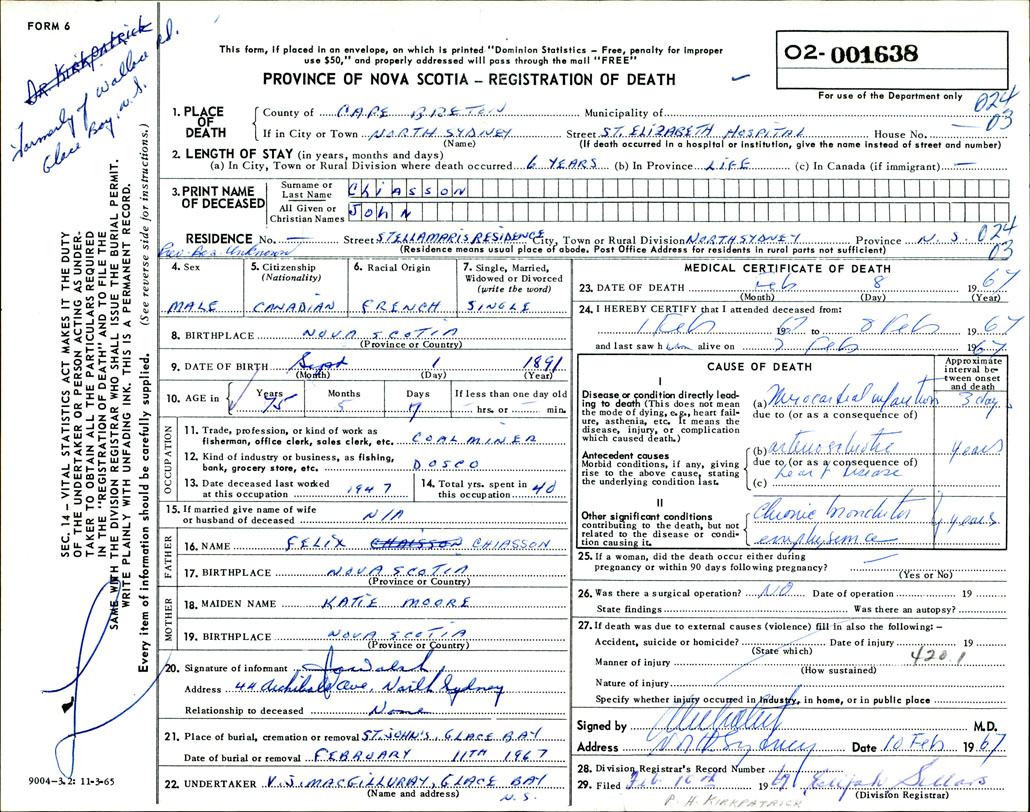 FORM 6
Dr. KIRKPATRICK
formerly of Wallace Rd.
Glace Bay, N.S.
This form, if placed in an envelope, on which is printed "Dominion Statistics – Free, penalty for improper
use $50," and properly addressed will pass through the mail "FREE"
PROVINCE OF NOVA SCOTIA – REGISTRATION OF DEATH
02-001638
For use of the Department only
024
03
1. PLACE OF DEATH
County of CAPE BRETON Municipality of
If in City or Town NORTH SYDNEY Street ST. ELIZABETH HOSPITAL House No. —
(Name) (If death occurred in a hospital or institution, give the name instead of street and number)
2. LENGTH OF STAY (in years, months and days)
(a) In City, Town or Rural Division where death occurred 6 YEARS (b) In Province LIFE (c) In Canada (if immigrant) —
3. PRINT NAME OF DECEASED
Surname or Last Name Chiasson
All Given or Christian Names John
RESIDENCE No. — Street STELLAMARIS RESIDENCE City, Town or Rural Division NORTH SYDNEY Province N.S.
024
03
(Residence means usual place of abode. Post Office Address for residents in rural parts not sufficient)
Prev. Res. Unknown
4. Sex MALE
5. Citizenship (Nationality) CANADIAN
6. Racial Origin FRENCH
7. Single, Married, Widowed or Divorced (write the word) SINGLE
8. BIRTHPLACE NOVA SCOTIA
(Province or Country)
9. DATE OF BIRTH Sept 1 1891
(Month) (Day) (Year)
10. AGE in Years 75 Months 5 Days 7 If less than one day old – hrs. or – min.
OCCUPATION
11. Trade, profession, or kind of work as fisherman, office clerk, sales clerk, etc. COAL MINER
12. Kind of industry or business, as fishing, bank, grocery store, etc. DOSCO
13. Date deceased last worked at this occupation 1947
14. Total yrs. spent in this occupation 40
15. If married give name of wife or husband of deceased N/A
FATHER
16. NAME FELIX CHAISSON CHIASSON
17. BIRTHPLACE NOVA SCOTIA
(Province or Country)
MOTHER
18. MAIDEN NAME KATIE MOORE
19. BIRTHPLACE NOVA SCOTIA
(Province or Country)
20. Signature of informant Walsh
Address 44 Archibald Ave, North Sydney
Relationship to deceased None
21. Place of burial, cremation or removal ST. JOHN'S, GLACE BAY
Date of burial or removal FEBRUARY 11TH 1967
22. UNDERTAKER V.J. MACGILLURAY, GLACE BAY
(Name and address) N.S.
MEDICAL CERTIFICATE OF DEATH
23. DATE OF DEATH Feb 8 1967
(Month) (Day) (Year)
24. I HEREBY CERTIFY that I attended deceased from:
1 Feb 1967 to 8 Feb 1967
and last saw h alive on Feb 1967
CAUSE OF DEATH
Approximate interval between onset and death
I
Disease or condition directly leading to death (This does not mean the mode of dying, e.g., heart failure, asthenia, etc. It means the disease, injury, or complication which caused death.)
(a) Myocardial infarction 3 days
due to (or as a consequence of)
Antecedent causes
Morbid conditions, if any, giving rise to the above cause, stating the underlying condition last.
(b) arteriosclerotic years
due to (or as a consequence of)
heart disease
(c)
II
Other significant conditions
contributing to the death, but not related to the disease or condition causing it.
Chronic bronchitis years
emphysema
25. If a woman, did the death occur either during pregnancy or within 90 days following pregnancy? —
(Yes or No)
26. Was there a surgical operation? NO Date of operation 19
State findings Was there an autopsy?
27. If death was due to external causes (violence) fill in also the following: –
Accident, suicide or homicide? Date of injury 19
(State which)
Manner of injury 420 1
(How sustained)
Nature of injury
Specify whether injury occurred in Industry, in home, or in public place
Signed by M.D.
Address North Sydney Date 10 Feb 1967
28. Division Registrar's Record Number
29. Filed Feb. 16 1967 Sellars
(Division Registrar)
P. H. KIRKPATRICK
SEC. 14 – VITAL STATISTICS ACT MAKES IT THE DUTY
OF THE UNDERTAKER OR PERSON ACTING AS UNDER-
TAKER TO OBTAIN ALL THE PARTICULARS REQUIRED
IN THE "REGISTRATION OF DEATH" AND TO FILE THE
SAME WITH THE DIVISION REGISTRAR WHO SHALL ISSUE THE BURIAL PERMIT.
WRITE PLAINLY WITH UNFADING INK. THIS IS A PERMANENT RECORD.
Every item of information should be carefully supplied. (See reverse side for instructions.)
9004-3.2: 11-3-65